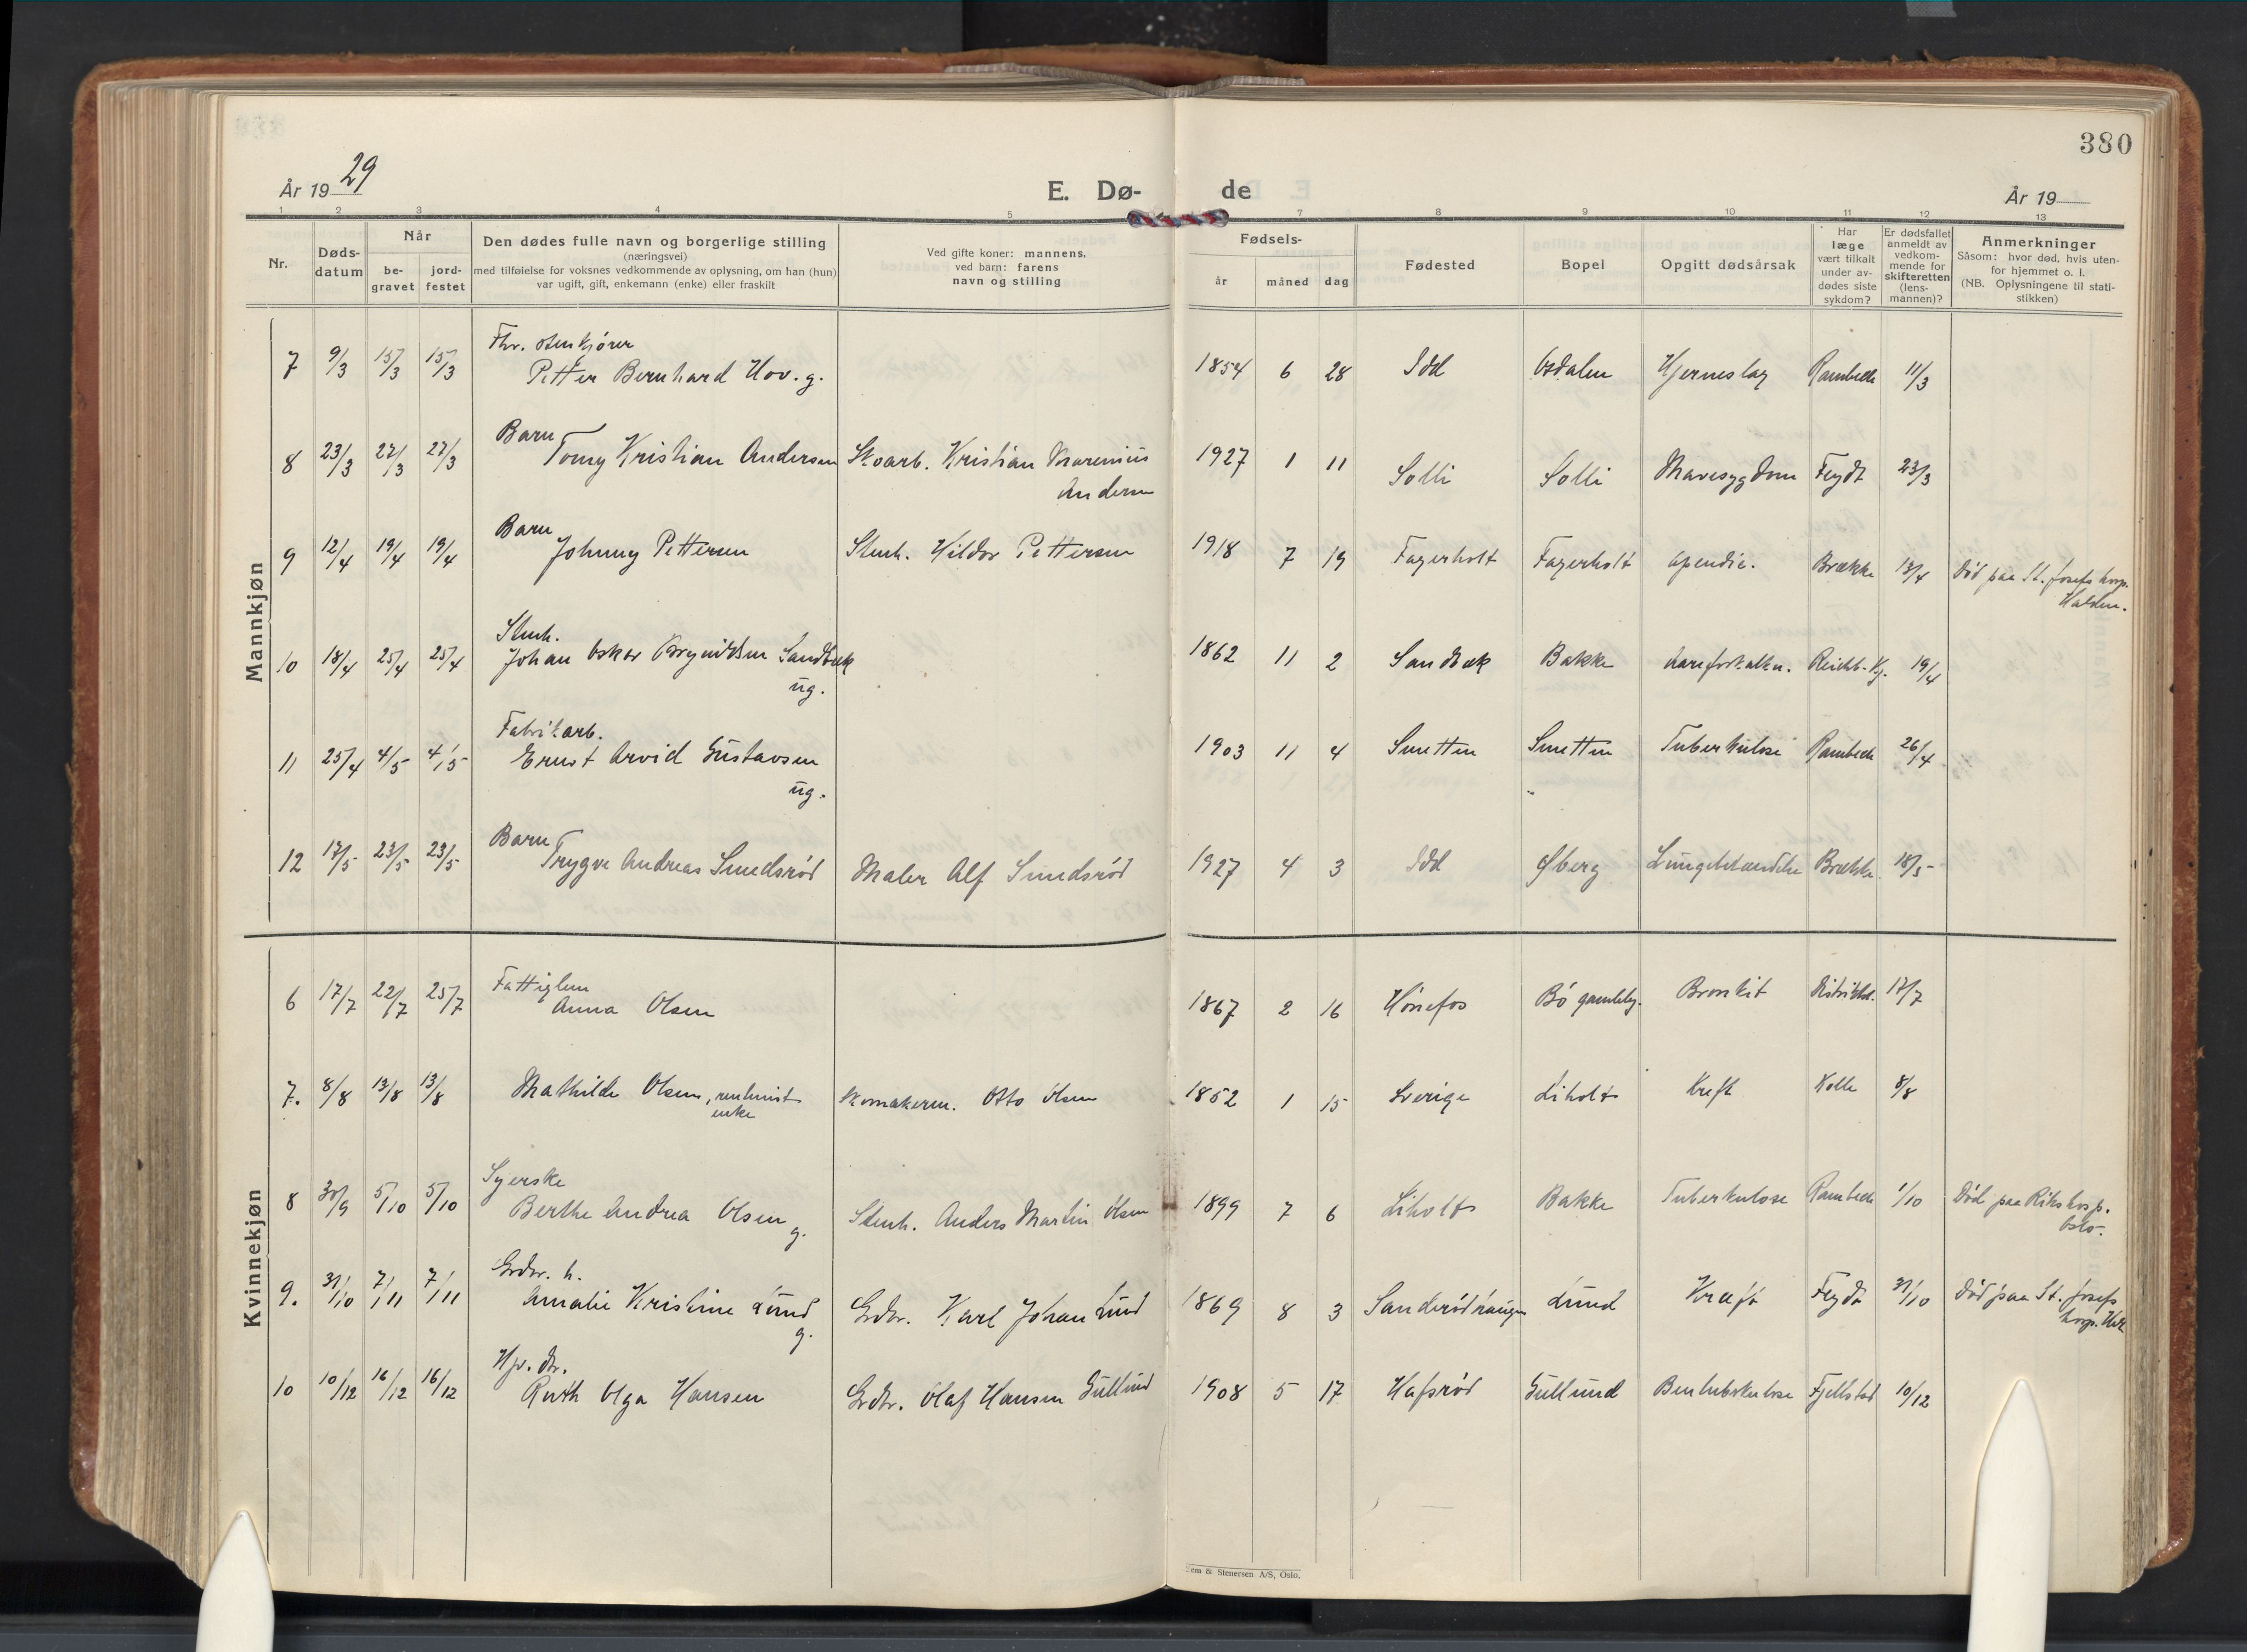 380
År 1929
E. Dø-
de
År 19
1 2 3 4 5 7 8 9 10 11 12 13
Nr.
Døds-
datum
Når
be-
gravet
jord-
festet
Den dødes fulle navn og borgerlige stilling
(næringsvei)
med tilføielse for voksnes vedkommende av oplysning, om han (hun)
var ugift, gift, enkemann (enke) eller fraskilt
Ved gifte koner: mannens,
ved barn: farens
navn og stilling
Fødsels-
år måned dag
Fødested
Bopel
Opgitt dødsårsak
Har
læge
vært tilkalt
under av-
dødes siste
sykdom?
Er dødsfallet
anmeldt av
vedkom-
mende for
skifteretten
(lens-
mannen)?
Anmerkninger
Såsom: hvor død, hvis uten-
for hjemmet o. l.
(NB. Oplysningene til stati-
stikken)
Mannkjøn
Fhv. stenkjører
7 9/3 15/3 15/3 Petter Bernhard Hov. g. 1854 6 28 Idd Osdalen Hjerneslag Rambech 11/3
Barn
8 23/3 27/3 27/3 Tomy Kristian Andersen Skoarb. Kristian Marenius 1927 1 11 Solli Solli Mavesygdom Feydt 23/3
Andersen
Barn
9 12/4 19/4 19/4 Johnny Pettersen Stenh. Hildor Pettersen 1918 7 19 Fagerholt Fagerholt apendic. Brække 13/4 Død paa St. Josefs hosp.
Halden.
Stenh.
10 18/4 25/4 25/4 Johan Oskar Brynildsen Sandbæk 1862 11 2 Sandbæk Bakke Aareforkalkn. 19/4
ug.
Fabrikarb.
11 25/4 4/5 4/5 Ernst Arvid Gustavsen 1903 11 4 Smetten Smetten Tuberkulose Rambech 26/4
ug.
Barn
12 17/5 23/5 23/5 Trygve Andreas Smedsrød Maler Alf Smedsrød 1927 4 3 Idd Øberg Lungebetændelse Brække 18/5
Kvinnekjøn
Fattiglem
6 17/7 22/7 25/7 Anna Olsen 1867 2 16 Hønefos Bø gamleh. Bronkit Distriktsl. 17/7
7. 8/8 13/8 13/8 Mathilde Olsen, 1852 1 15 Sverige Liholt Kreft Kolle 8/8
enke
Skomakerm. Otto Olsen
Syerske
8 30/9 5/10 5/10 Berthe Andrea Olsen Stenh. Anders Martin Olsen 1899 7 6 Liholt Bakke Tuberkulose Rambech 1/10 Død paa Rikshosp.
g.
Oslo.
Grdbr. h.
9. 31/10 7/11 7/11 Amalie Kristine Lund Grdbr. Karl Johan Lund 1869 8 3 Sanderødhaugen Lund Kræft Feydt 31/10 Død paa St. Josefs
g.
hosp. Hld.
Hjv. Dtr.
10 10/12 16/12 16/12 Ruth Olga Hansen Grdbr. Olaf Hansen Gullund 1908 5 17 Hafsrød Gullund Bentuberkulose Fjellstad 10/12
Sem & Stenersen A/S, Oslo.